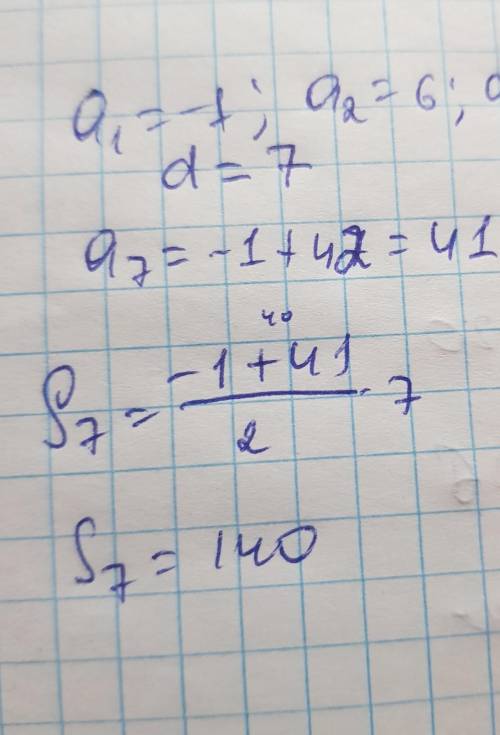 a₁ = -1; a₂ = 6; a
d = 7
a₇ = -1 + 42 = 41
40
S₇ = (-1 + 41)/2 · 7
S₇ = 140